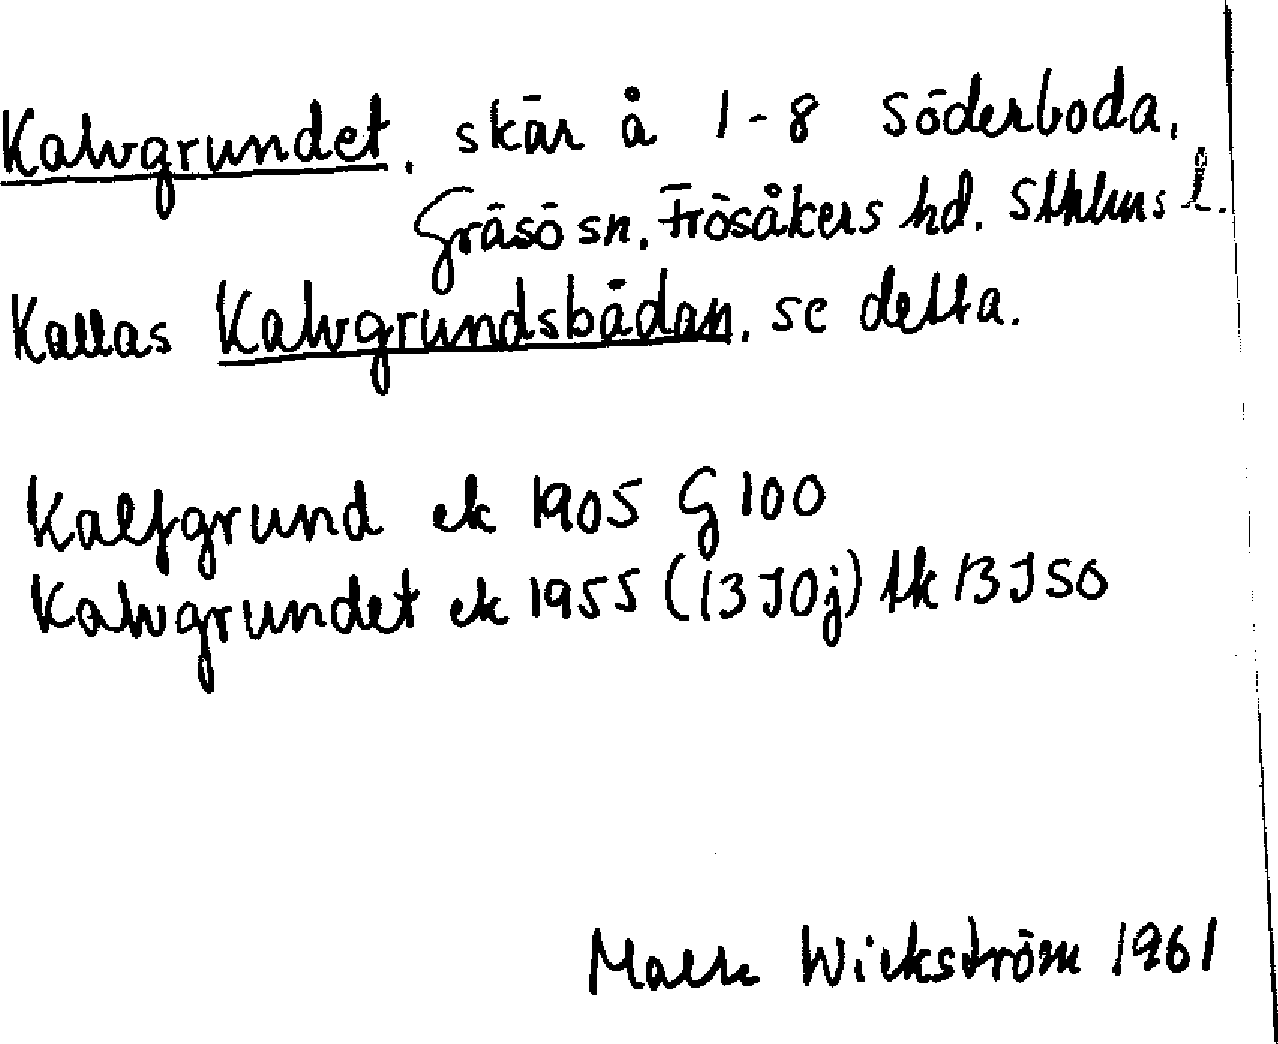 Kalvgrundet, skär å 1-8 Söderboda,
Gräsö sn, Frösåkers hd. Sthlms l.
Kallas Kalvgrundsbådan, se detta.
Kalfgrund ek 1905 G 100
Kalvgrundet ek 1955 (13 I 0j) tk 13 I SO
Wickström 1961